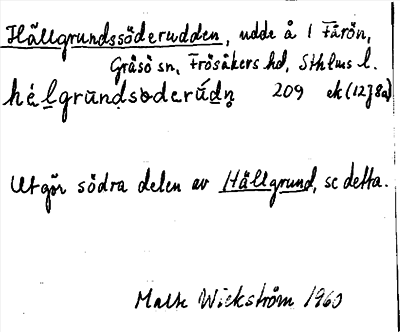 Hällgrundssöderudden, udde å l Fårön,
Gräsö sn, Frösåkers hd, Sthlms l.
209 ek (12I8a)
Utgör södra delen av Hällgrund, se detta.
Malte Wickström 1960